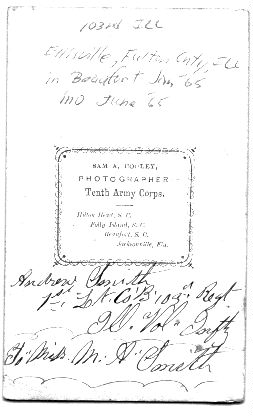 103rd Ill
Ellisville, Fulton Cnty, Ill
in Beaufort Jan '65
MO June '65
SAM A. COOLEY,
PHOTOGRAPHER
Tenth Army Corps.
Hilton Head, S. C.
Folly Island, S. C.
Beaufort, S. C.
Jacksonville, Fla.
Andrew Smith
1st Lt Co "B" 103rd Regt
Ill. Vol. Infty
To Miss M. A. Smith